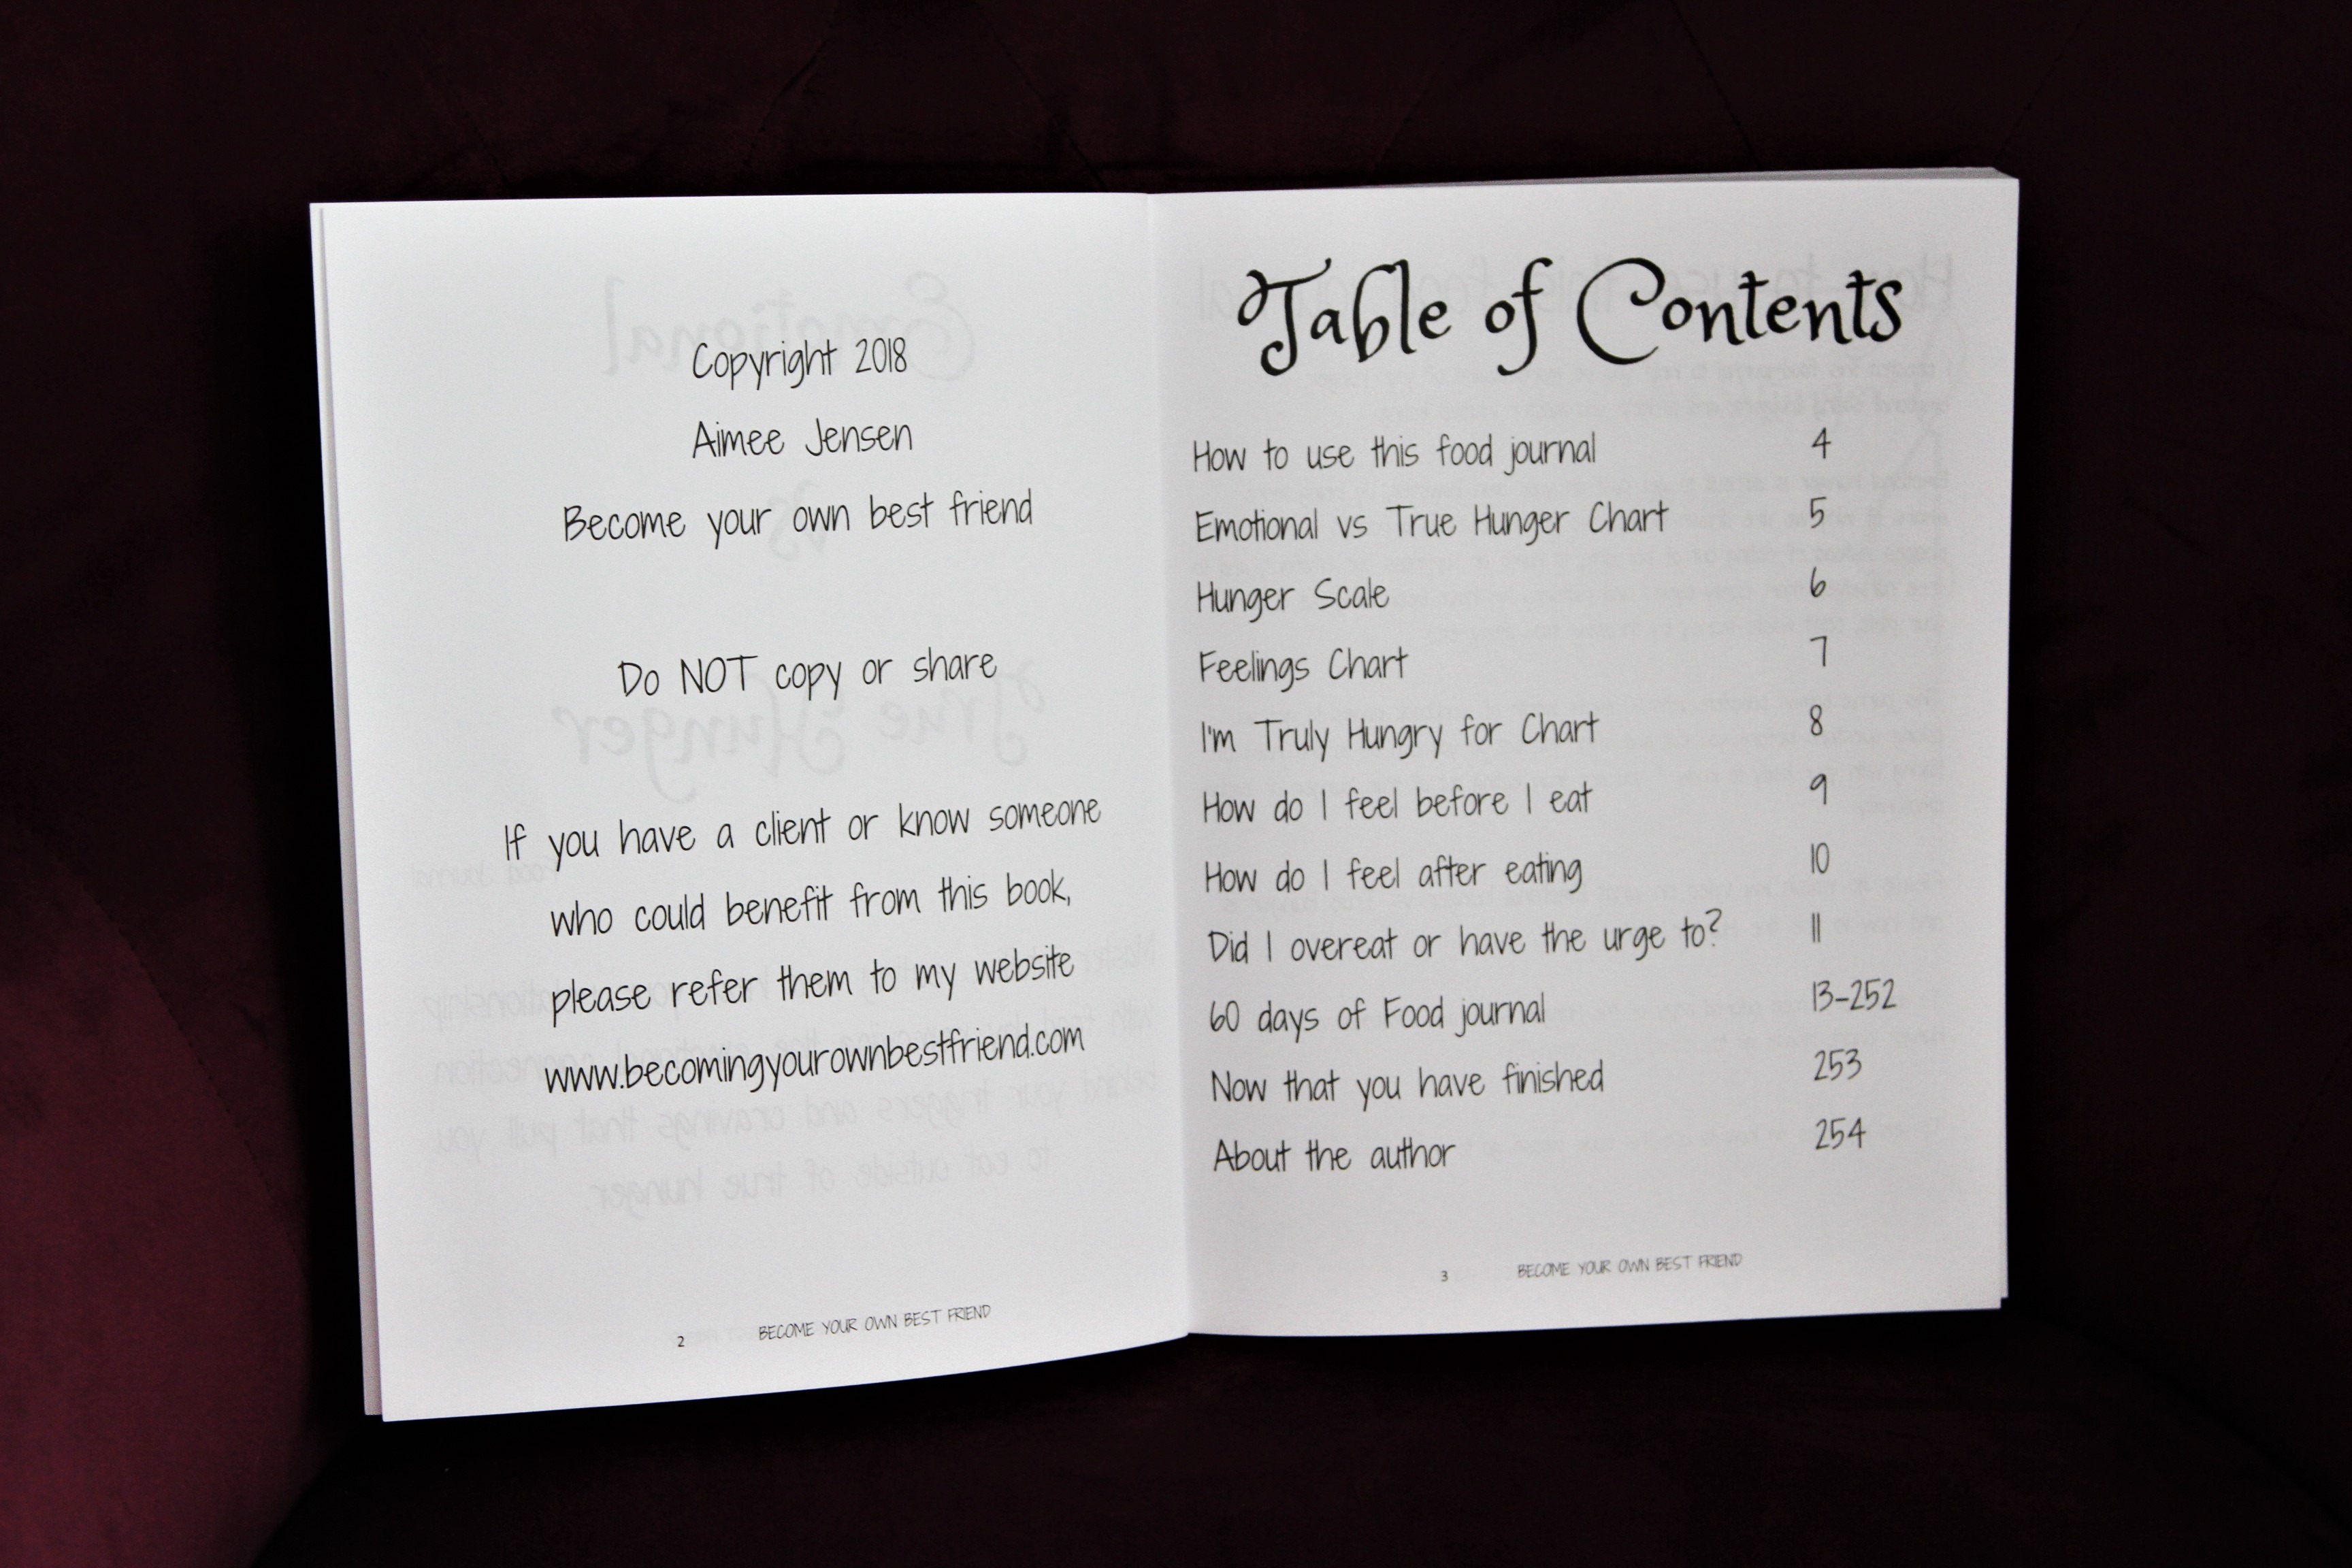 Copyright 2018
Aimee Jensen
Become your own best friend
Do NOT copy or share
If you have a client or know someone
who could benefit from this book,
please refer them to my website
www.becomingyourownbestfriend.com
2 BECOME YOUR OWN BEST FRIEND
Table of Contents
How to use this food journal 4
Emotional vs True Hunger Chart 5
Hunger Scale 6
Feelings Chart 7
I'm Truly Hungry for Chart 8
How do I feel before I eat 9
How do I feel after eating 10
Did I overeat or have the urge to? 11
60 days of Food journal 13-252
Now that you have finished 253
About the author 254
3 BECOME YOUR OWN BEST FRIEND